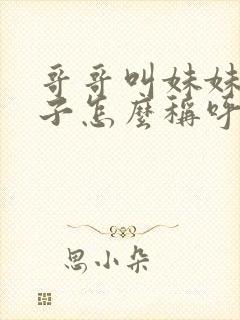 哥哥叫妹妹
子怎麼稱呼
思小朵